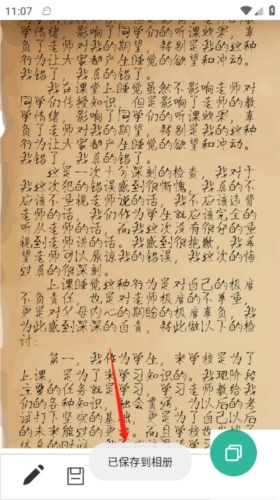 11:07
学情绪，影响了同学们的听课效果，辜
负了老师对我的期望，特别是我的这种
行为让大家都产生睡觉的欲望和冲动。
我错了，我真的错了。
我在课堂上睡觉虽然不影响老师对
同学们传授知识，但是影响了老师的教
学情绪，影响了同学们的听课效果，辜
负了老师对我的期望，特别是我的这种
行为让大家都产生睡觉的欲望和冲动。
我错了，我真的错了。
这是一次十分深刻的检查，我对于
我这次犯的错误感到很惭愧，我真的不
应该不重视老师说的话，我不应该违背
老师的话，我们作为学生就应该完全的
听从老师的话，而我这次没有很好的重
视到老师讲的话。我感到很抱歉，我希
望老师可以原谅我的错误，我这次的悔
过真的很深刻。
上课睡觉这种行为是对自己的极度
不负责任，也是对老师极度的不尊重，
更是对父母内心的期盼的极度辜负，我
为此感到深深的自责，特此做以下的检
讨：
第一，我作为学生，来学校是为了
上课，是为了来学习知识的。我现阶段
主要的任务就是学习，学习老师教给我
们的各种知识，融会贯通，为以后的考
试打下坚实的基础，更是为了自己以后
的未来能过的更 而且学校也
已保存到相册